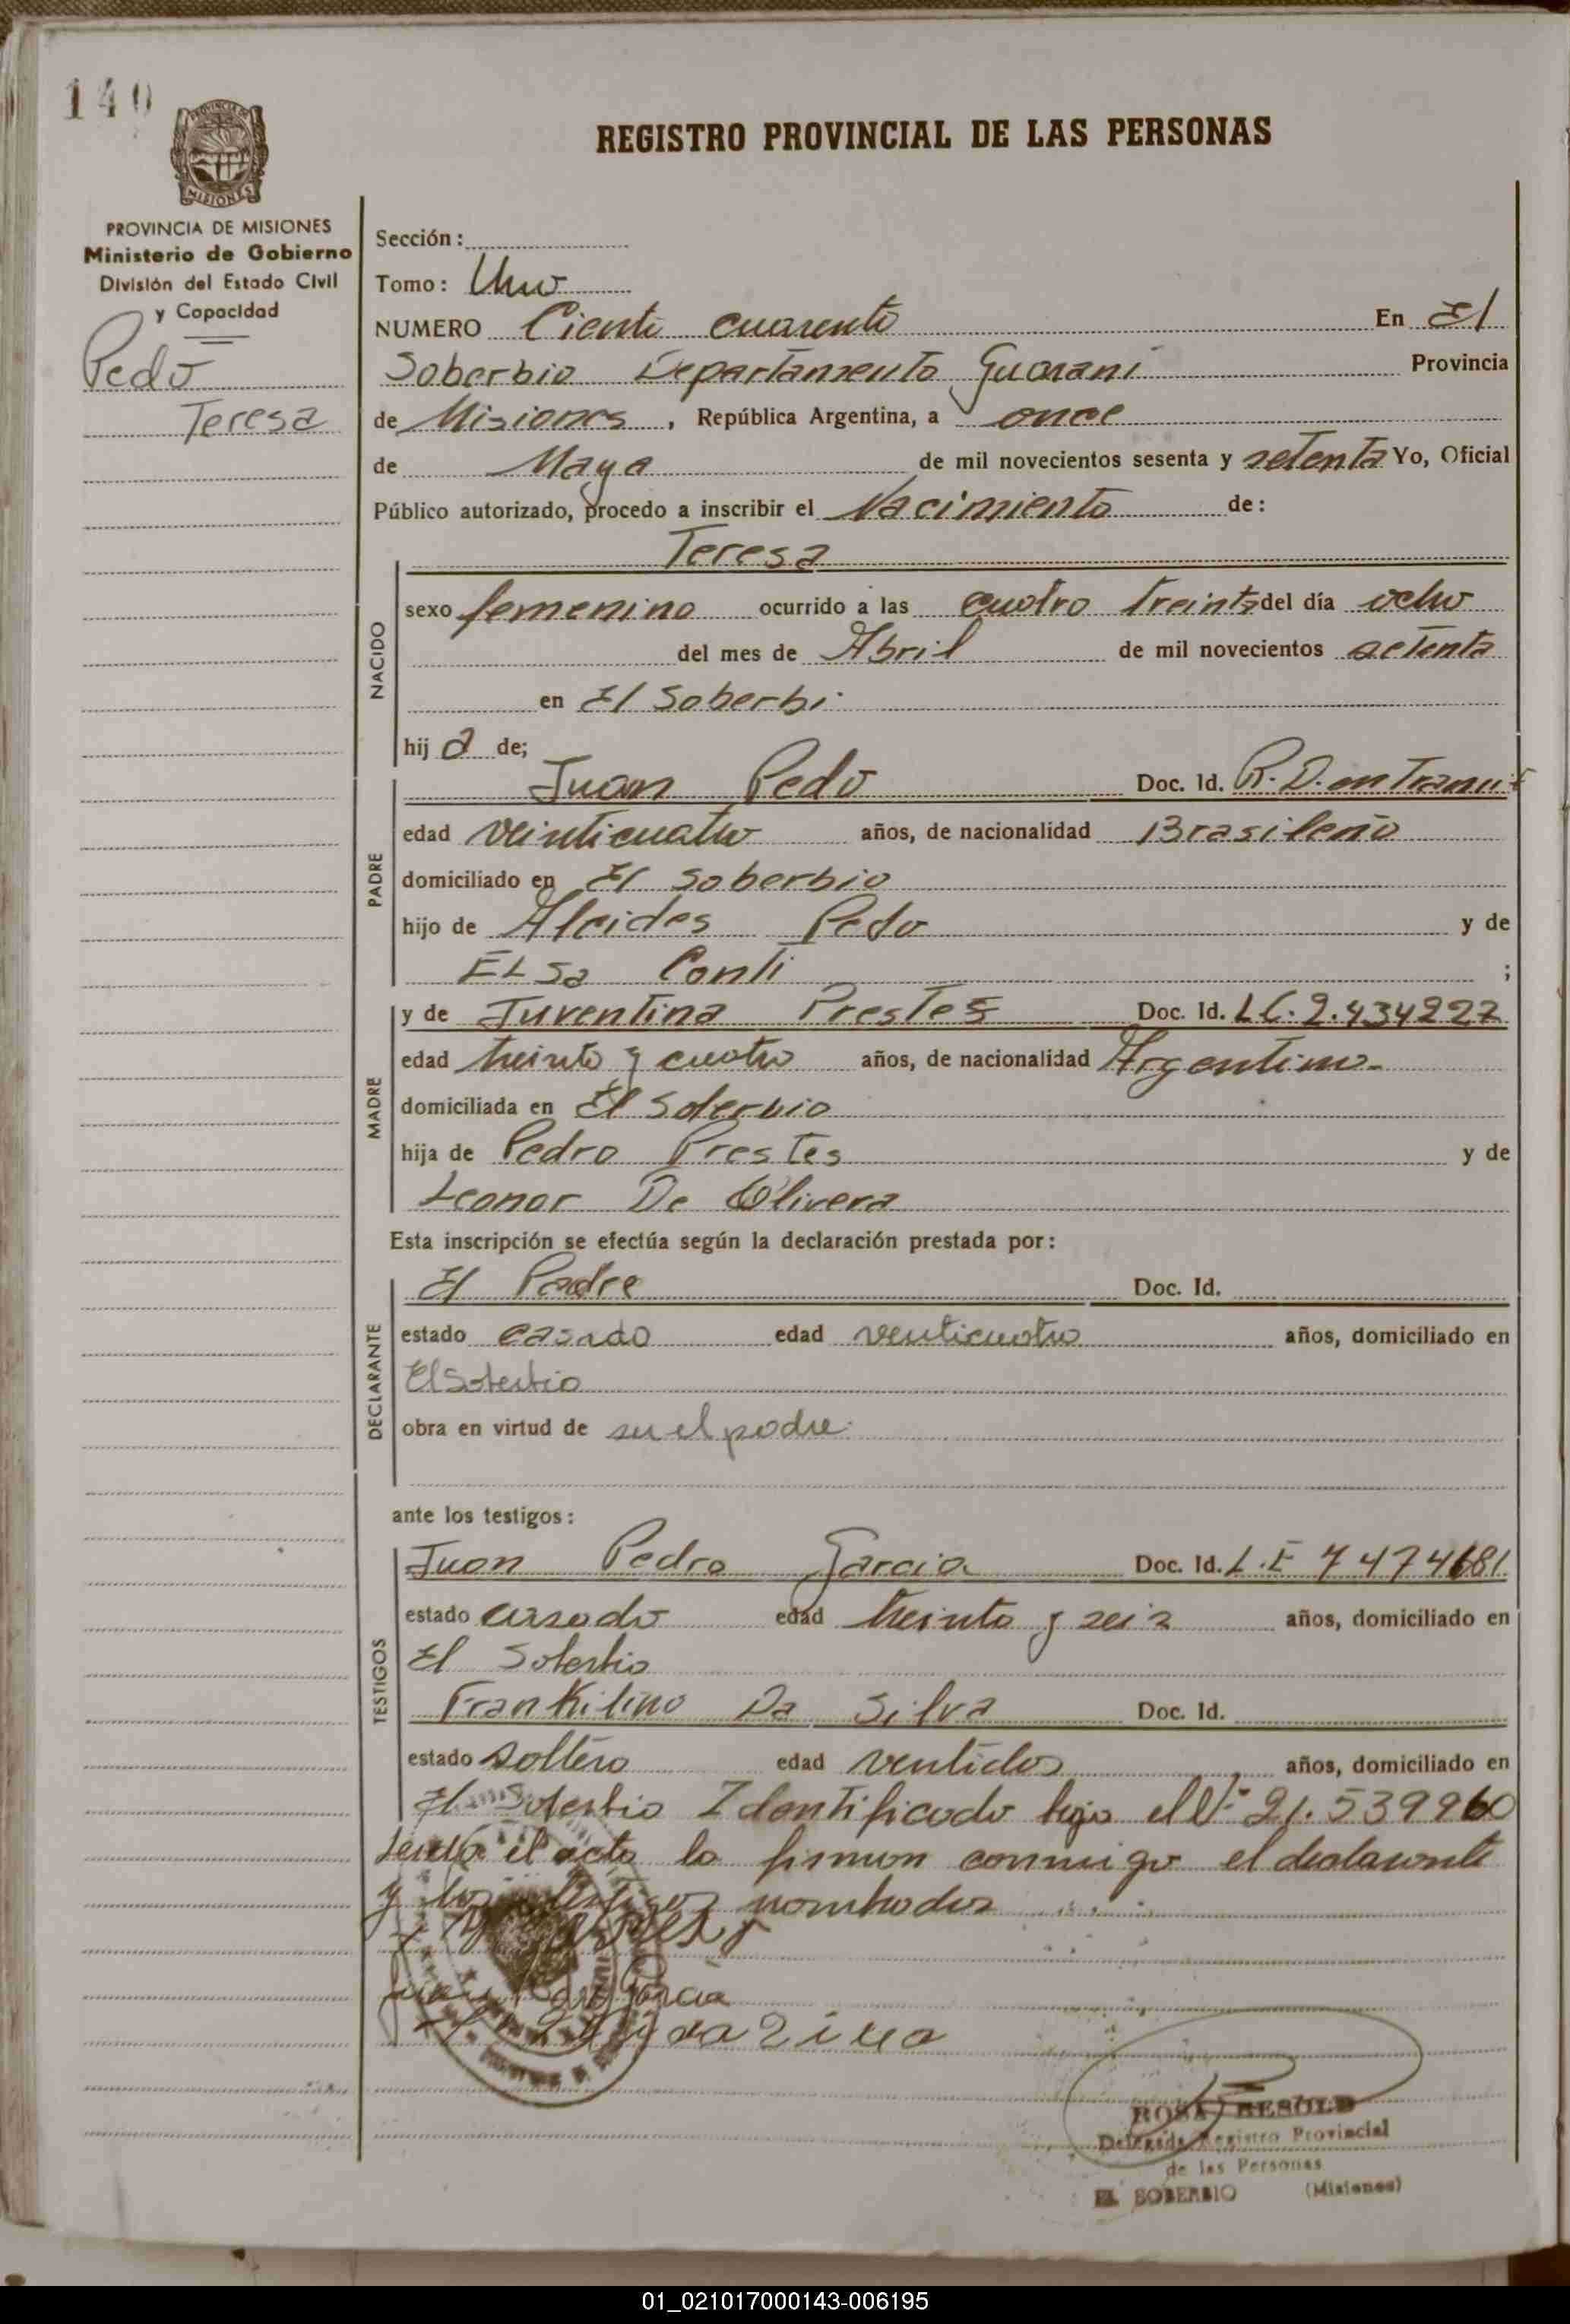 140
PROVINCIA DE MISIONES
Ministerio de Gobierno
División del Estado Civil
y Capacidad
Pedó
Teresa
REGISTRO PROVINCIAL DE LAS PERSONAS
Sección:
Tomo: Uno
NUMERO Ciento cuarento En El
Soberbio Departamento Guarani Provincia
de Misiones, República Argentina, a once
de Mayo de mil novecientos sesenta y setenta Yo, Oficial
Público autorizado, procedo a inscribir el Nacimiento de:
Teresa
NACIDO
sexo femenino ocurrido a las cuatro treinta del día ocho
del mes de Abril de mil novecientos setenta
en El Soberbi
hij a de;
PADRE
Juan Pedó Doc. Id. R.D. en Tramit
edad veinticuatro años, de nacionalidad Brasileño
domiciliado en El Soberbio
hijo de Alcides Pedo y de
ELSa Conti ;
MADRE
y de Juventina Prestes Doc. Id. LC. 2.434227
edad treinta y cuatro años, de nacionalidad Argentina.
domiciliada en El Soberbio
hija de Pedro Prestes y de
Leonor De Olivera
Esta inscripción se efectúa según la declaración prestada por:
DECLARANTE
El Padre Doc. Id.
estado casado edad venticuatro años, domiciliado en
El Soberbio
obra en virtud de ser el padre.
ante los testigos:
TESTIGOS
Juan Pedro Garcia Doc. Id. L.E 7474681
estado casado edad treinta y seis años, domiciliado en
El Soberbio
Frankilino Da Silva Doc. Id.
estado soltero edad ventidos años, domiciliado en
El Soberbio Identificado bajo el Nº 21.539960
Leida el acta la firman conmigo el declarante
y los testigos nombrados
Garcia
da Silva
ROSA BESOLD
Delegada Registro Provincial
de las Personas
EL SOBERBIO (Misiones)
01_021017000143-006195